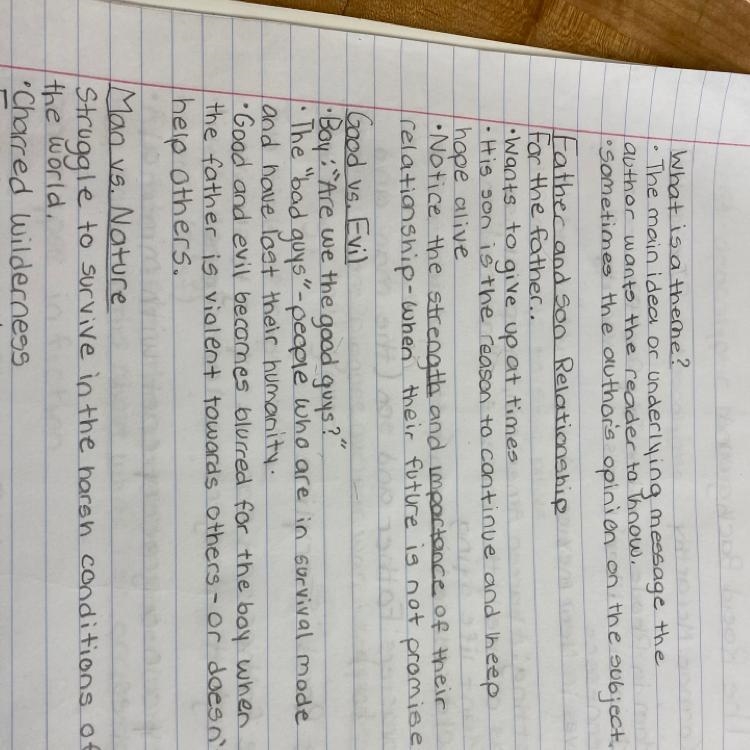 What is a theme?
• The main idea or underlying message the
author wants the reader to know.
• sometimes the author's opinion on the subject.
Father and son Relationship
For the father..
• Wants to give up at times
• His son is the reason to continue and keep
hope alive
• Notice the strength and importance of their
relationship - when their future is not promise
Good vs. Evil
• Boy: "Are we the good guys?"
• The "bad guys" - people who are in survival mode
and have lost their humanity.
• Good and evil becomes blurred for the boy when
the father is violent towards others - or doesn'
help others.
Man vs. Nature
Struggle to survive in the harsh conditions of
the world.
• Charred wilderness